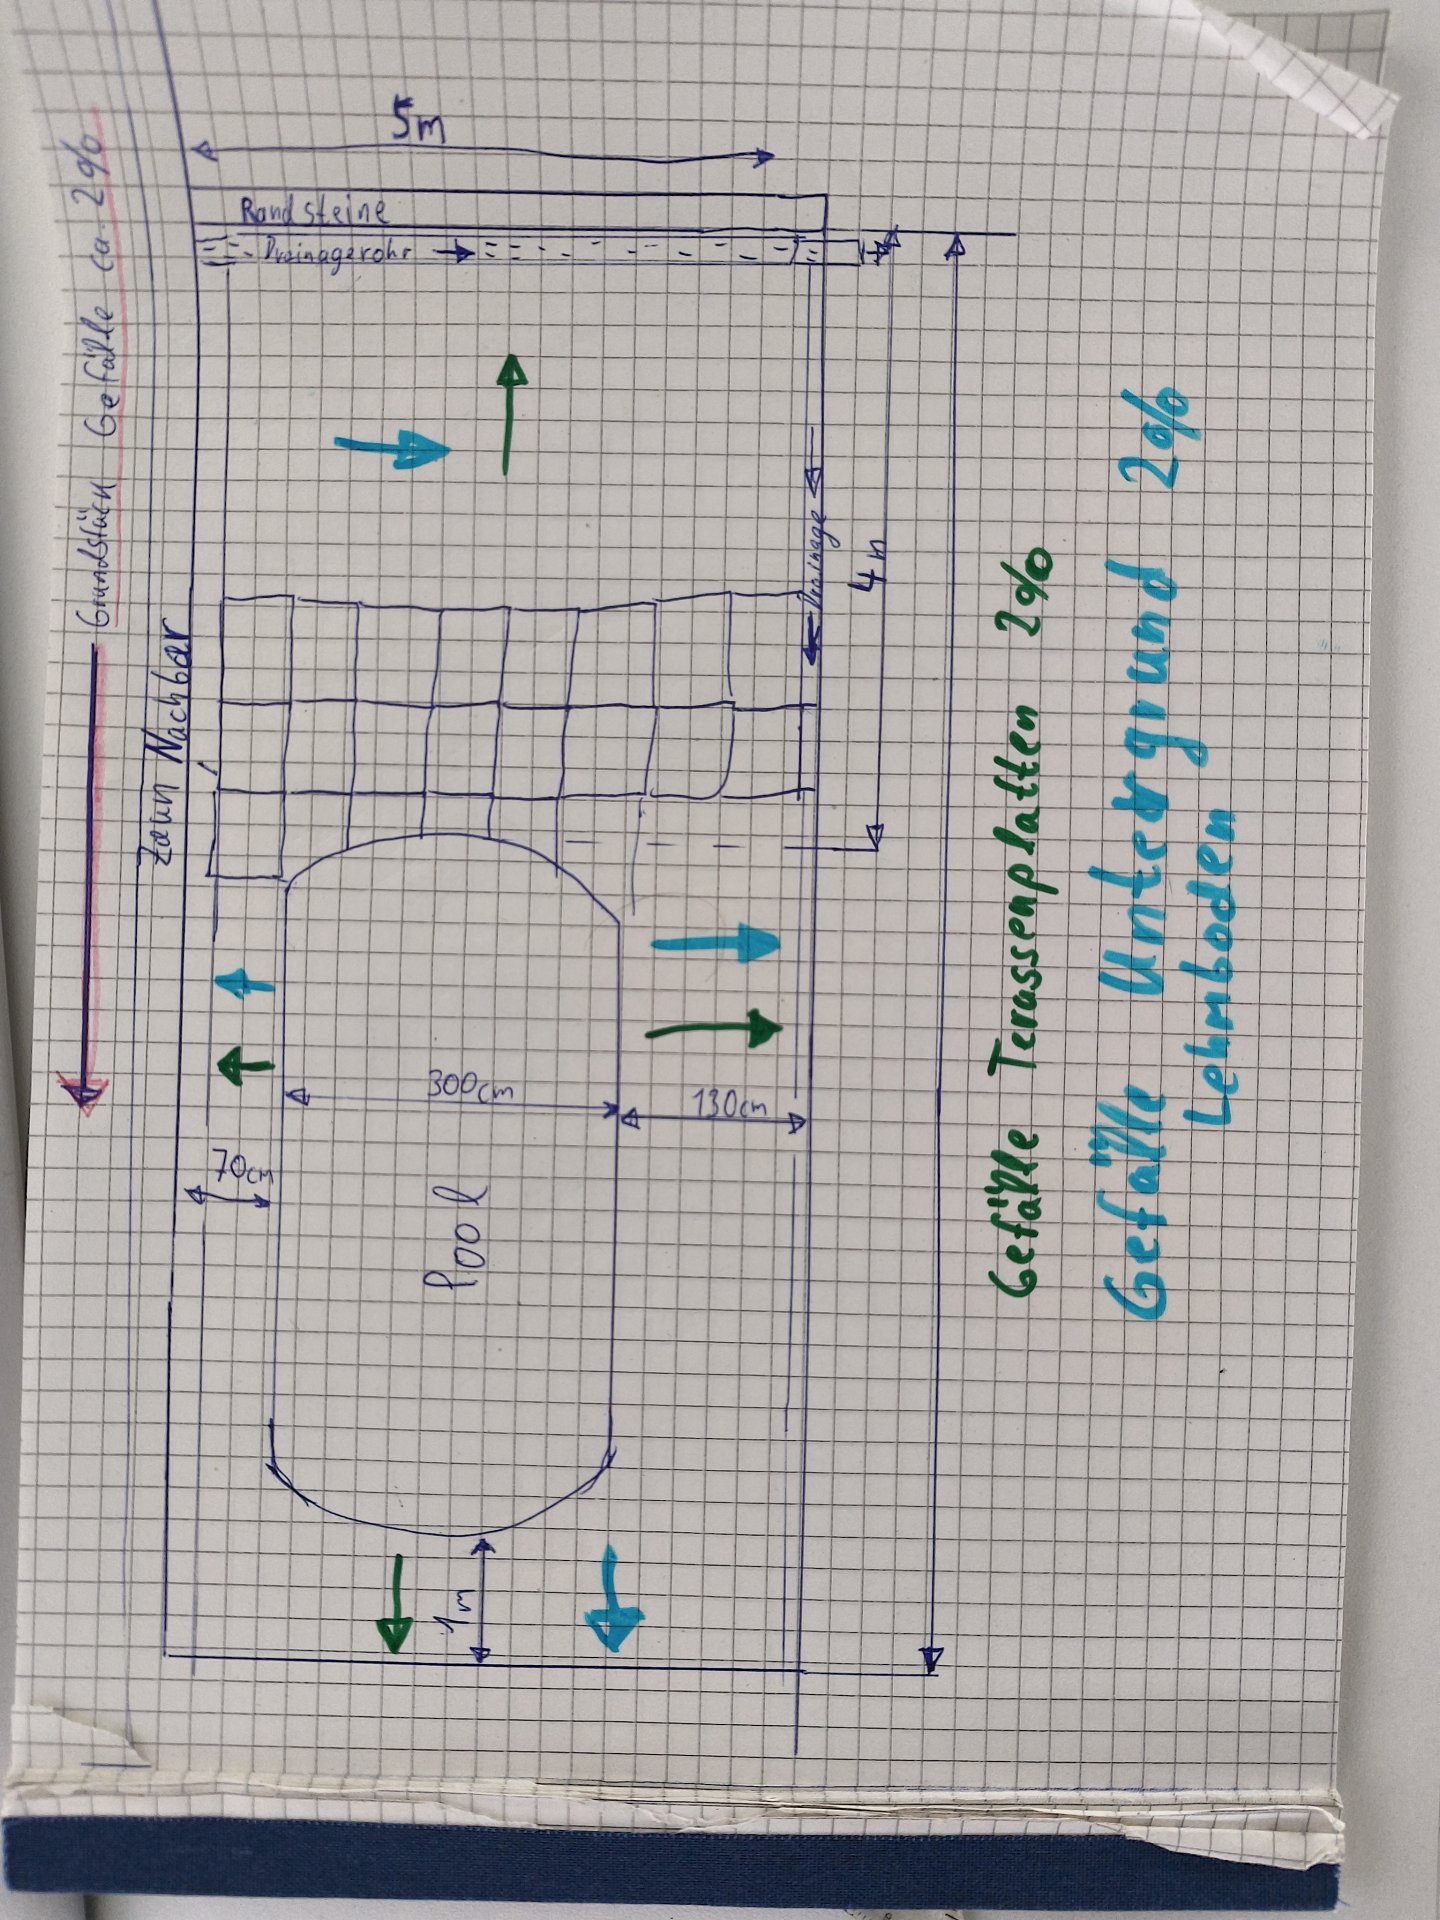 5m
Randsteine
Drainagerohr
Grundstück Gefälle ca. 2%
Zaun Nachbar
Drainage
4m
300cm
130cm
70cm
Pool
1m
Gefälle Terassenplatten 2%
Gefälle Untergrund 2%
Lehmboden